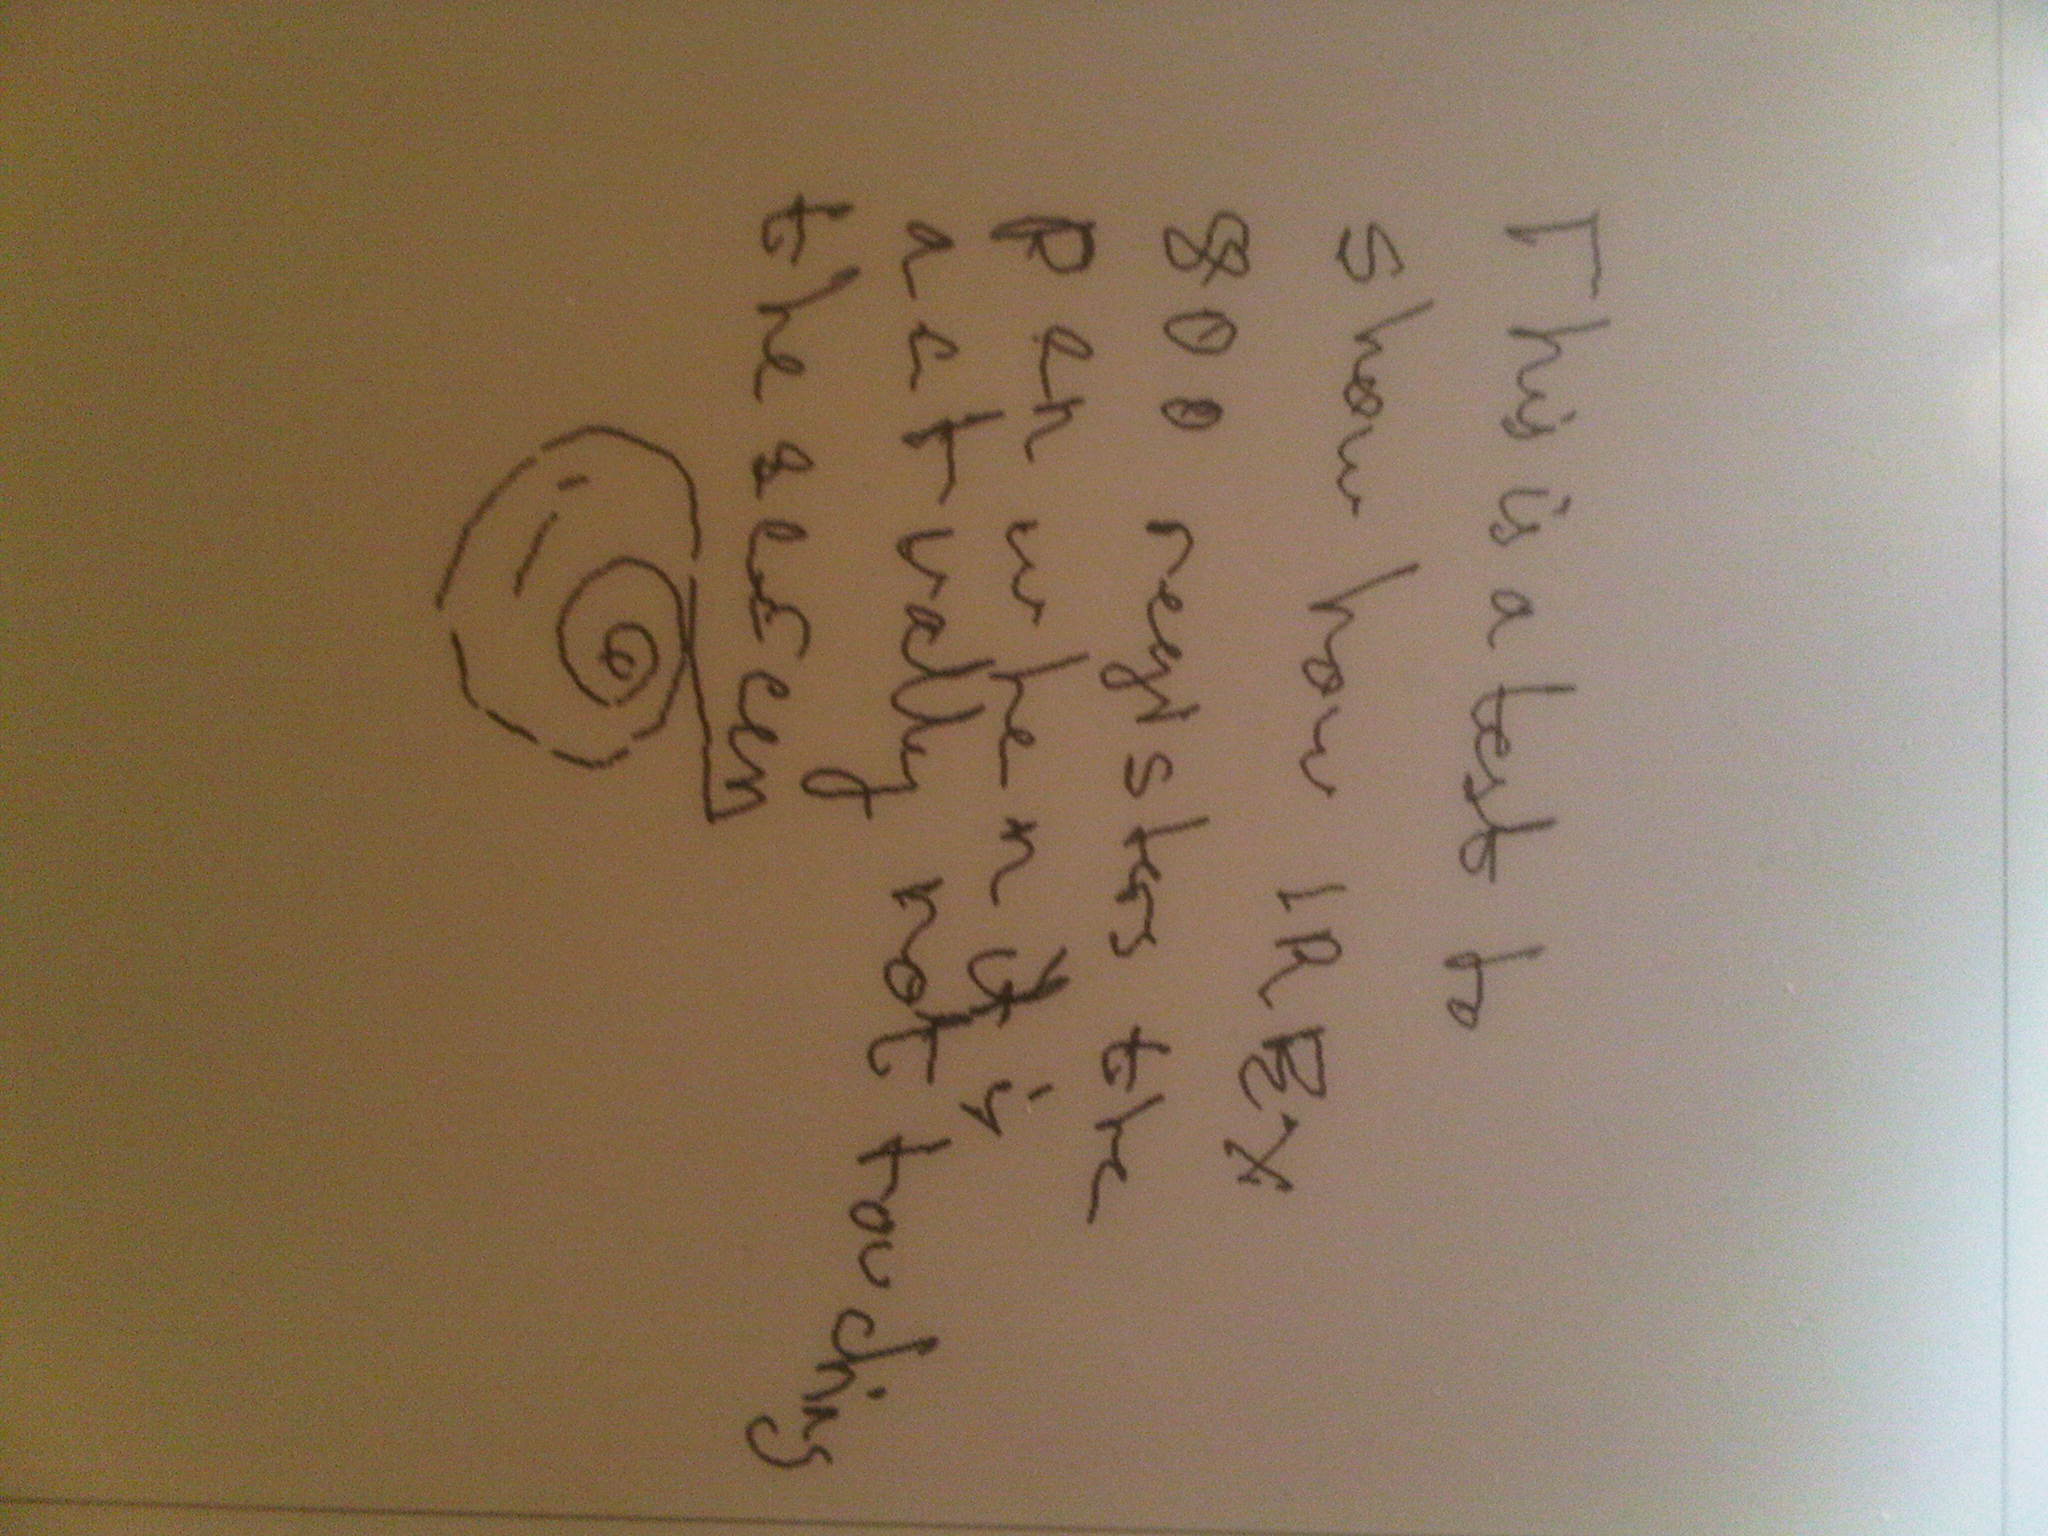 This is a test to
show how IREX
800 registers the
pen when it is
actually not touching
the screen